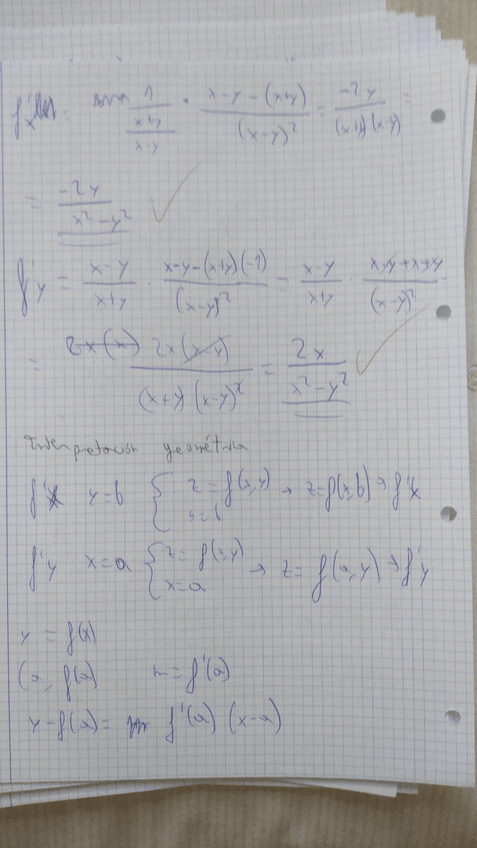 f'x = 1/((x+y)/(x-y)) · (x-y-(x+y))/(x-y)² = -2y/((x+y)(x-y)) =
= -2y/(x²-y²) ✓
f'y = (x-y)/(x+y) · (x-y-(x+y)(-1))/(x-y)² = (x-y)/(x+y) · (x-y+x+y)/(x-y)²
= 2x(x-y)/((x+y)(x-y)²) = 2x/(x²-y²) ✓
Interpretación geométria
f'x y=b { z=f(x,y) → z=f(x,b) → f'x
y=b
f'y x=a { z=f(x,y) → z=f(a,y) → f'y
x=a
y = f(x)
(a, f(a) m=f'(a)
y-f(a)= f'(a) (x-a)